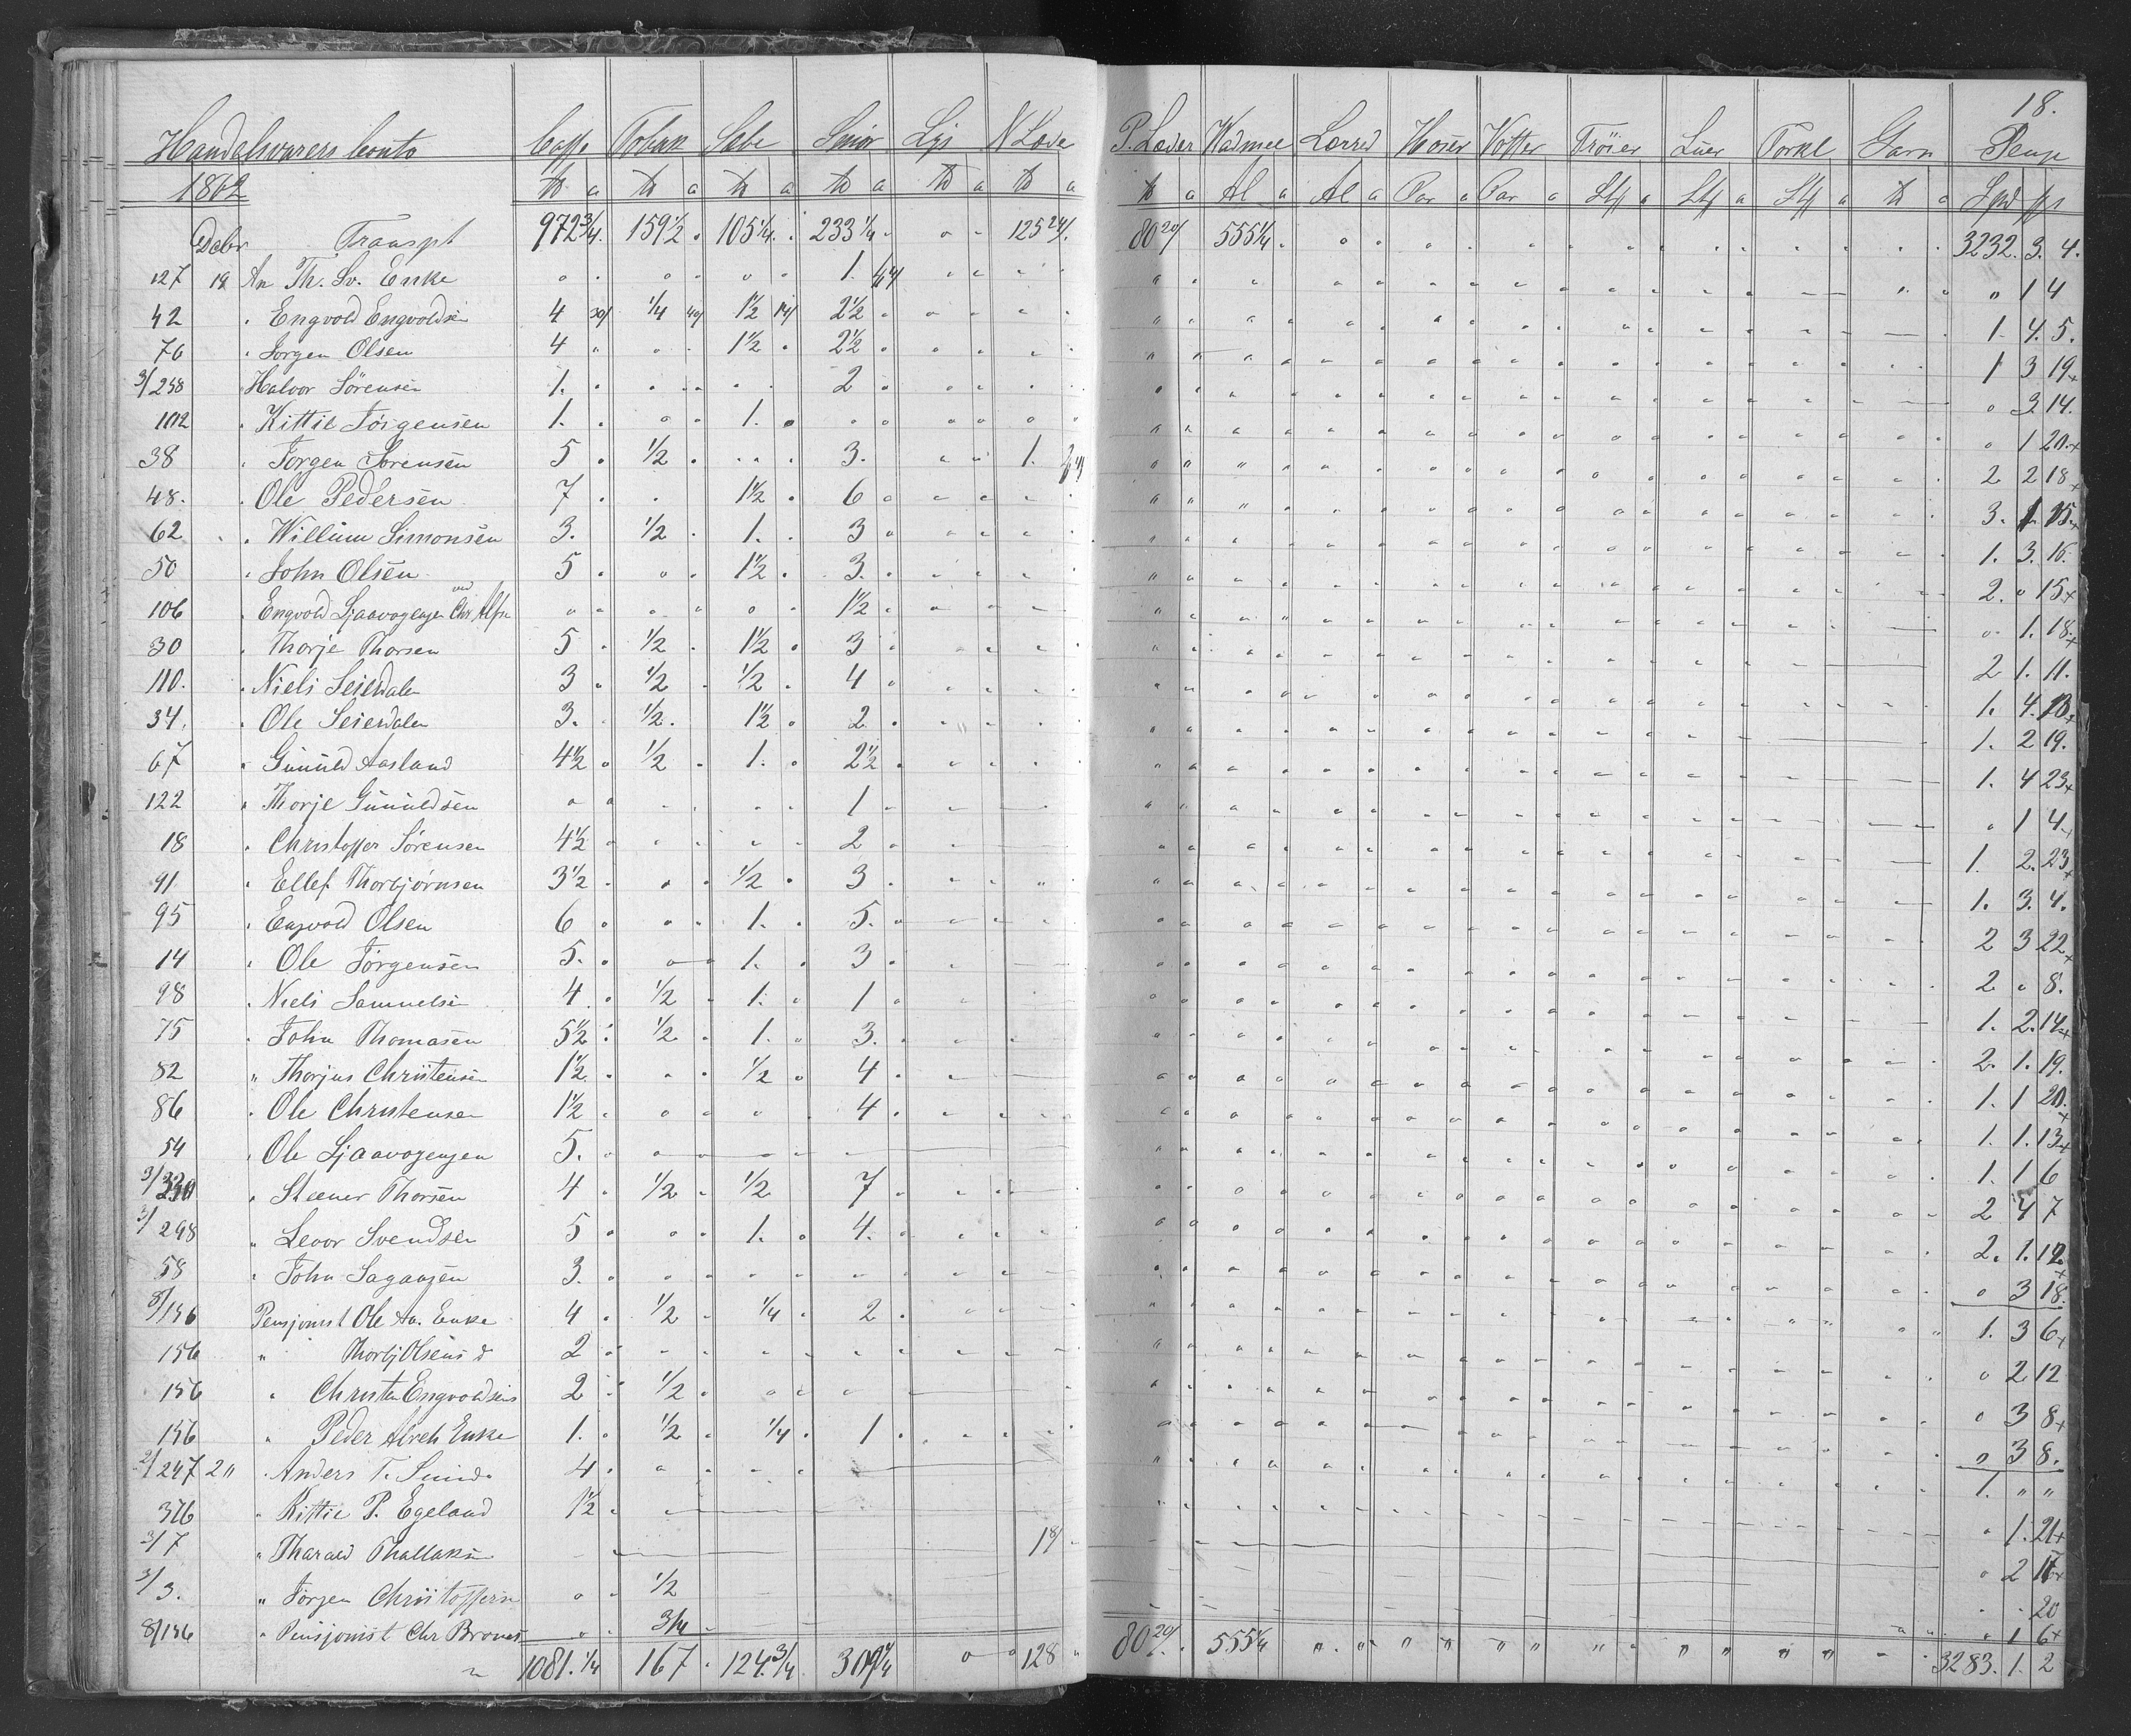 18.
Handelsvarers Conto Caffe Tobak Sæbe Smør Lys N Læde P. Læder Wadmel Lærred Hoser Votter Trøier Luer Tørkl Garn Penge
1862 ℔ a ℔ a ℔ a ℔ a ℔ a ℔ a ℔ a Al a Al a Par a Par a Stk a Stk a Stk a ℔ a Spd ſs
Debr Transpt 972 3/4 159 1/2 105 1/4 233 1/4 " " 125 24/ 80 20/ 555 1/4 3232. 3. 4.
127 19 An Th. Sv. Enke 1. " 1 4
42 " Engvold Engvoldsen 4 1/4 1 1/2 2 1/2 1. 4. 5.
76 " Jørgen Olsen 4 1 1/2 2 1/2 1 3 19
3/238 Halvor Sørensen 1. 2 " 3 14.
102 " Kittil Jørgensen 1. 1. " 1 20
38 " Jørgen Sørensen 5 1/2 3. 1. 2 2 18
48. " Ole Pedersen 7 1 1/2 6 3. 1 15
62 " Willum Simonsen 3. 1/2 1. 3 1. 3. 16
50 " John Olsen 5 1 1/2 3. 2. " 15
106 " Engvold Ljaavogengen ved Chr Alfr 1 1/2 " 1. 18
30 " Thorje Thorsen 5 1/2 1 1/2 3 2 1. 11.
110. " Niels Seierdalen 3 1/2 1/2 4 1. 4. 18
34. " Ole Seierdalen 3. 1/2 1 1/2 2 1. 2 19.
67 " Gunuld Aasland 4 1/2 1/2 1. 2 1/2 1. 4 23
122 " Thorje Gunuldsen 1 " 1 4
18 " Christoffer Sørensen 4 1/2 2 1. 2. 23
91 " Ellef Thorbjørnsen 3 1/2 1/2 3 1. 3. 4.
95 " Engvold Olsen 6 1. 5. 2 3 22
14 " Ole Jørgensen 5. 1. 3 2 " 8.
98 " Niels Samuelsen 4 1/2 1. 1 1. 2. 14
75 " John Thomasen 5 1/2 1/2 1. 3. 2. 1. 19.
82 " Thorjus Christensen 1 1/2 1/2 4 1. 1 20.
86 " Ole Christensen 1 1/2 4 1. 1. 13
54 " Ole Ljaavogengen 5. 1. 1 6
3/330 " Steener Thorsen 4 1/2 1/2 7 2 4 7
3/298 " Levor Svendsen 5 1. 4. 2. 1. 12
58 " John Sagaasen 3. " 3 18.
8/156 Pensjonist Ole An. Enke 4 1/2 1/4 2 1. 3 6
156 " Thorbj Olsens d 2 " 2 12
156 " Christen Engvoldsens 2 1/2 " 3 8
156 " Peder Alreks Enke 1. 1/2 1/4 1 " 3 8.
2/247 2 " Anders T. Smed 4 1. " "
376 " Kittil P. Egeland 1 1/2 " 1. 21
3/7 " Tharald Thallaksen 18/ " 2
3/3. " Jørgen Christoffersen 1/2 20
8/156 " Pensjonist Chr Broves 3/4 " 1 6
1081. 1/4 167 124. 3/4 309 1/4 " " 128 80 20/ 555 1/4 3283. 1. 2